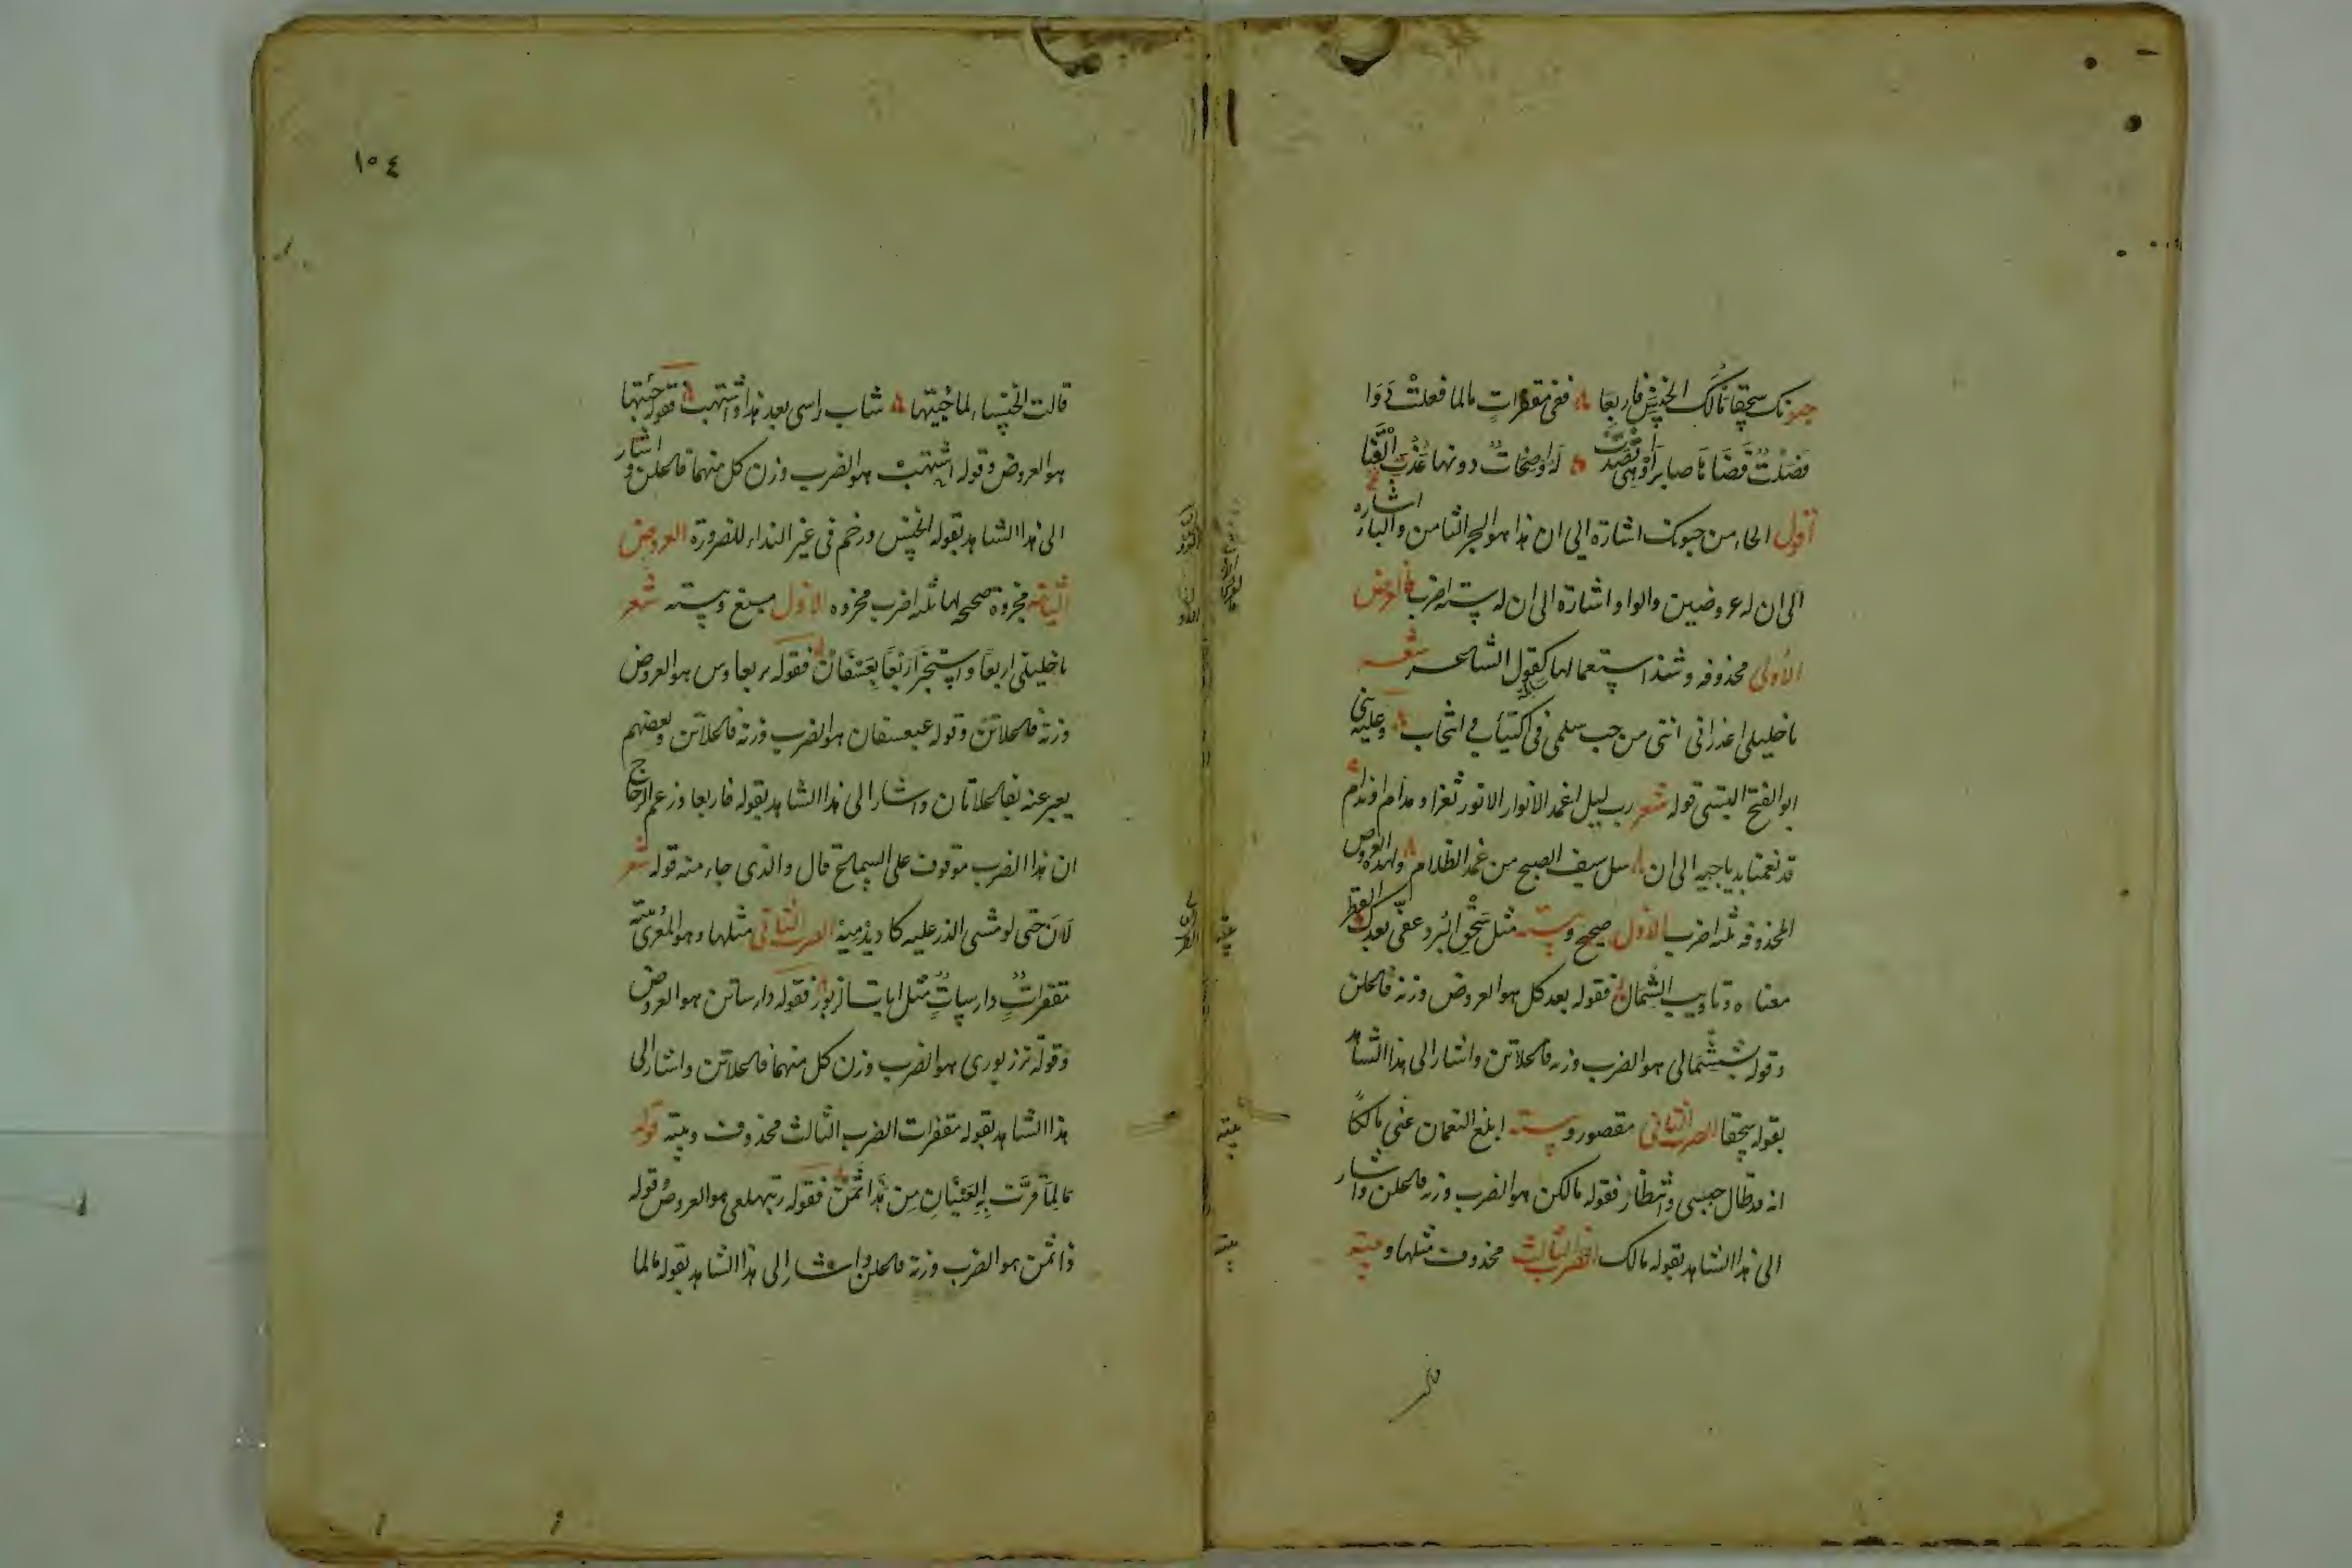 حبونك سحقا مالك الخنس فاربعا ففى مقفرات مالما فعلت دوا
فصلت قضانا صابرا وهى قصدت له واضحات دونها عذب القنا
أقول الحاء من حبونك اشارة الى ان هذا هو البحر الثامن والباء اشاره
الى ان له عروضين والواو اشارة الى ان له ستة اضرب فالعروض
الأولى محذوفه وشذ استعمالها سالمة كقول الشاعر شعر
يا خليلى اعذرانى اننى من حب سلمى فى اكتياب وانتحاب وعليه بنى
ابو الفتح البستى قوله شعر رب ليل اغمد الانوار الا نور ثغر او مدام او ندام
قد نعمنا بدياجيه الى ان سل سيف الصبح من غمد الظلام ولهذه العروض
المحذوفه ثلثه اضرب الأول صحيح وبيته مثل سحق البرد عفى بعدك القطر
معناه وتاويب الشمال فقوله بعد كل هو العروض وزنه فاعلن
وقوله بششمالى هو الضرب وزنه فاعلاتن واشار الى هذا الشاهد
بقوله سحقا الضرب الثانى مقصور وبيته ابلغ النعمان عنى مالكا
انه قد طال حبسى وانتظار فقوله مالكن هو الضرب وزنه فاعلن واشار
الى هذا الشاهد بقوله مالك الضرب الثالث محذوف مثلها وبيته
قالت
١٥٤
قالت الخنساء لما جئتها شاب راسى بعد هذا واشتهب فقوله جئتها
هو العروض وقوله اشتهب هو الضرب وزن كل منهما فاعلن واشار
الى هذا الشاهد بقوله الخنس ورخم فى غير النداء للضرورة العروض
الثانية مجزوة صحيحه لها ثلثه اضرب مجزوه الاول مسبغ وبيته شعر
يا خليلى اربعا واستخبرا ربعا بعسفان فقوله ربعا وس هو العروض
وزنه فاعلاتن وقوله عبعسفان هو الضرب وزنه فاعلاتان وبعضهم
يعبر عنه بفاعلاتان واشار الى هذا الشاهد بقوله فاربعا وزعم الزجاج
ان هذا الضرب موقوف على السماع قال والذى جاء منه قوله شعر
لان حتى لو مشى الذر عليه كاد يدميه الضرب الثانى مثلها وهو المعرى بيته
مقفرات دارسات مثل ايات الزبور فقوله دارساتن هو العروض
وقوله تززبورى هو الضرب وزن كل منهما فاعلاتن واشار الى
هذا الشاهد بقوله مقفرات الضرب الثالث محذوف وبيته قوله
مالما قرت به العينان من هذا ثمن فقوله رتبهلعى هو العروض وقوله
ذا ثمن هو الضرب وزنه فاعلن واشار الى هذا الشاهد بقوله مالما